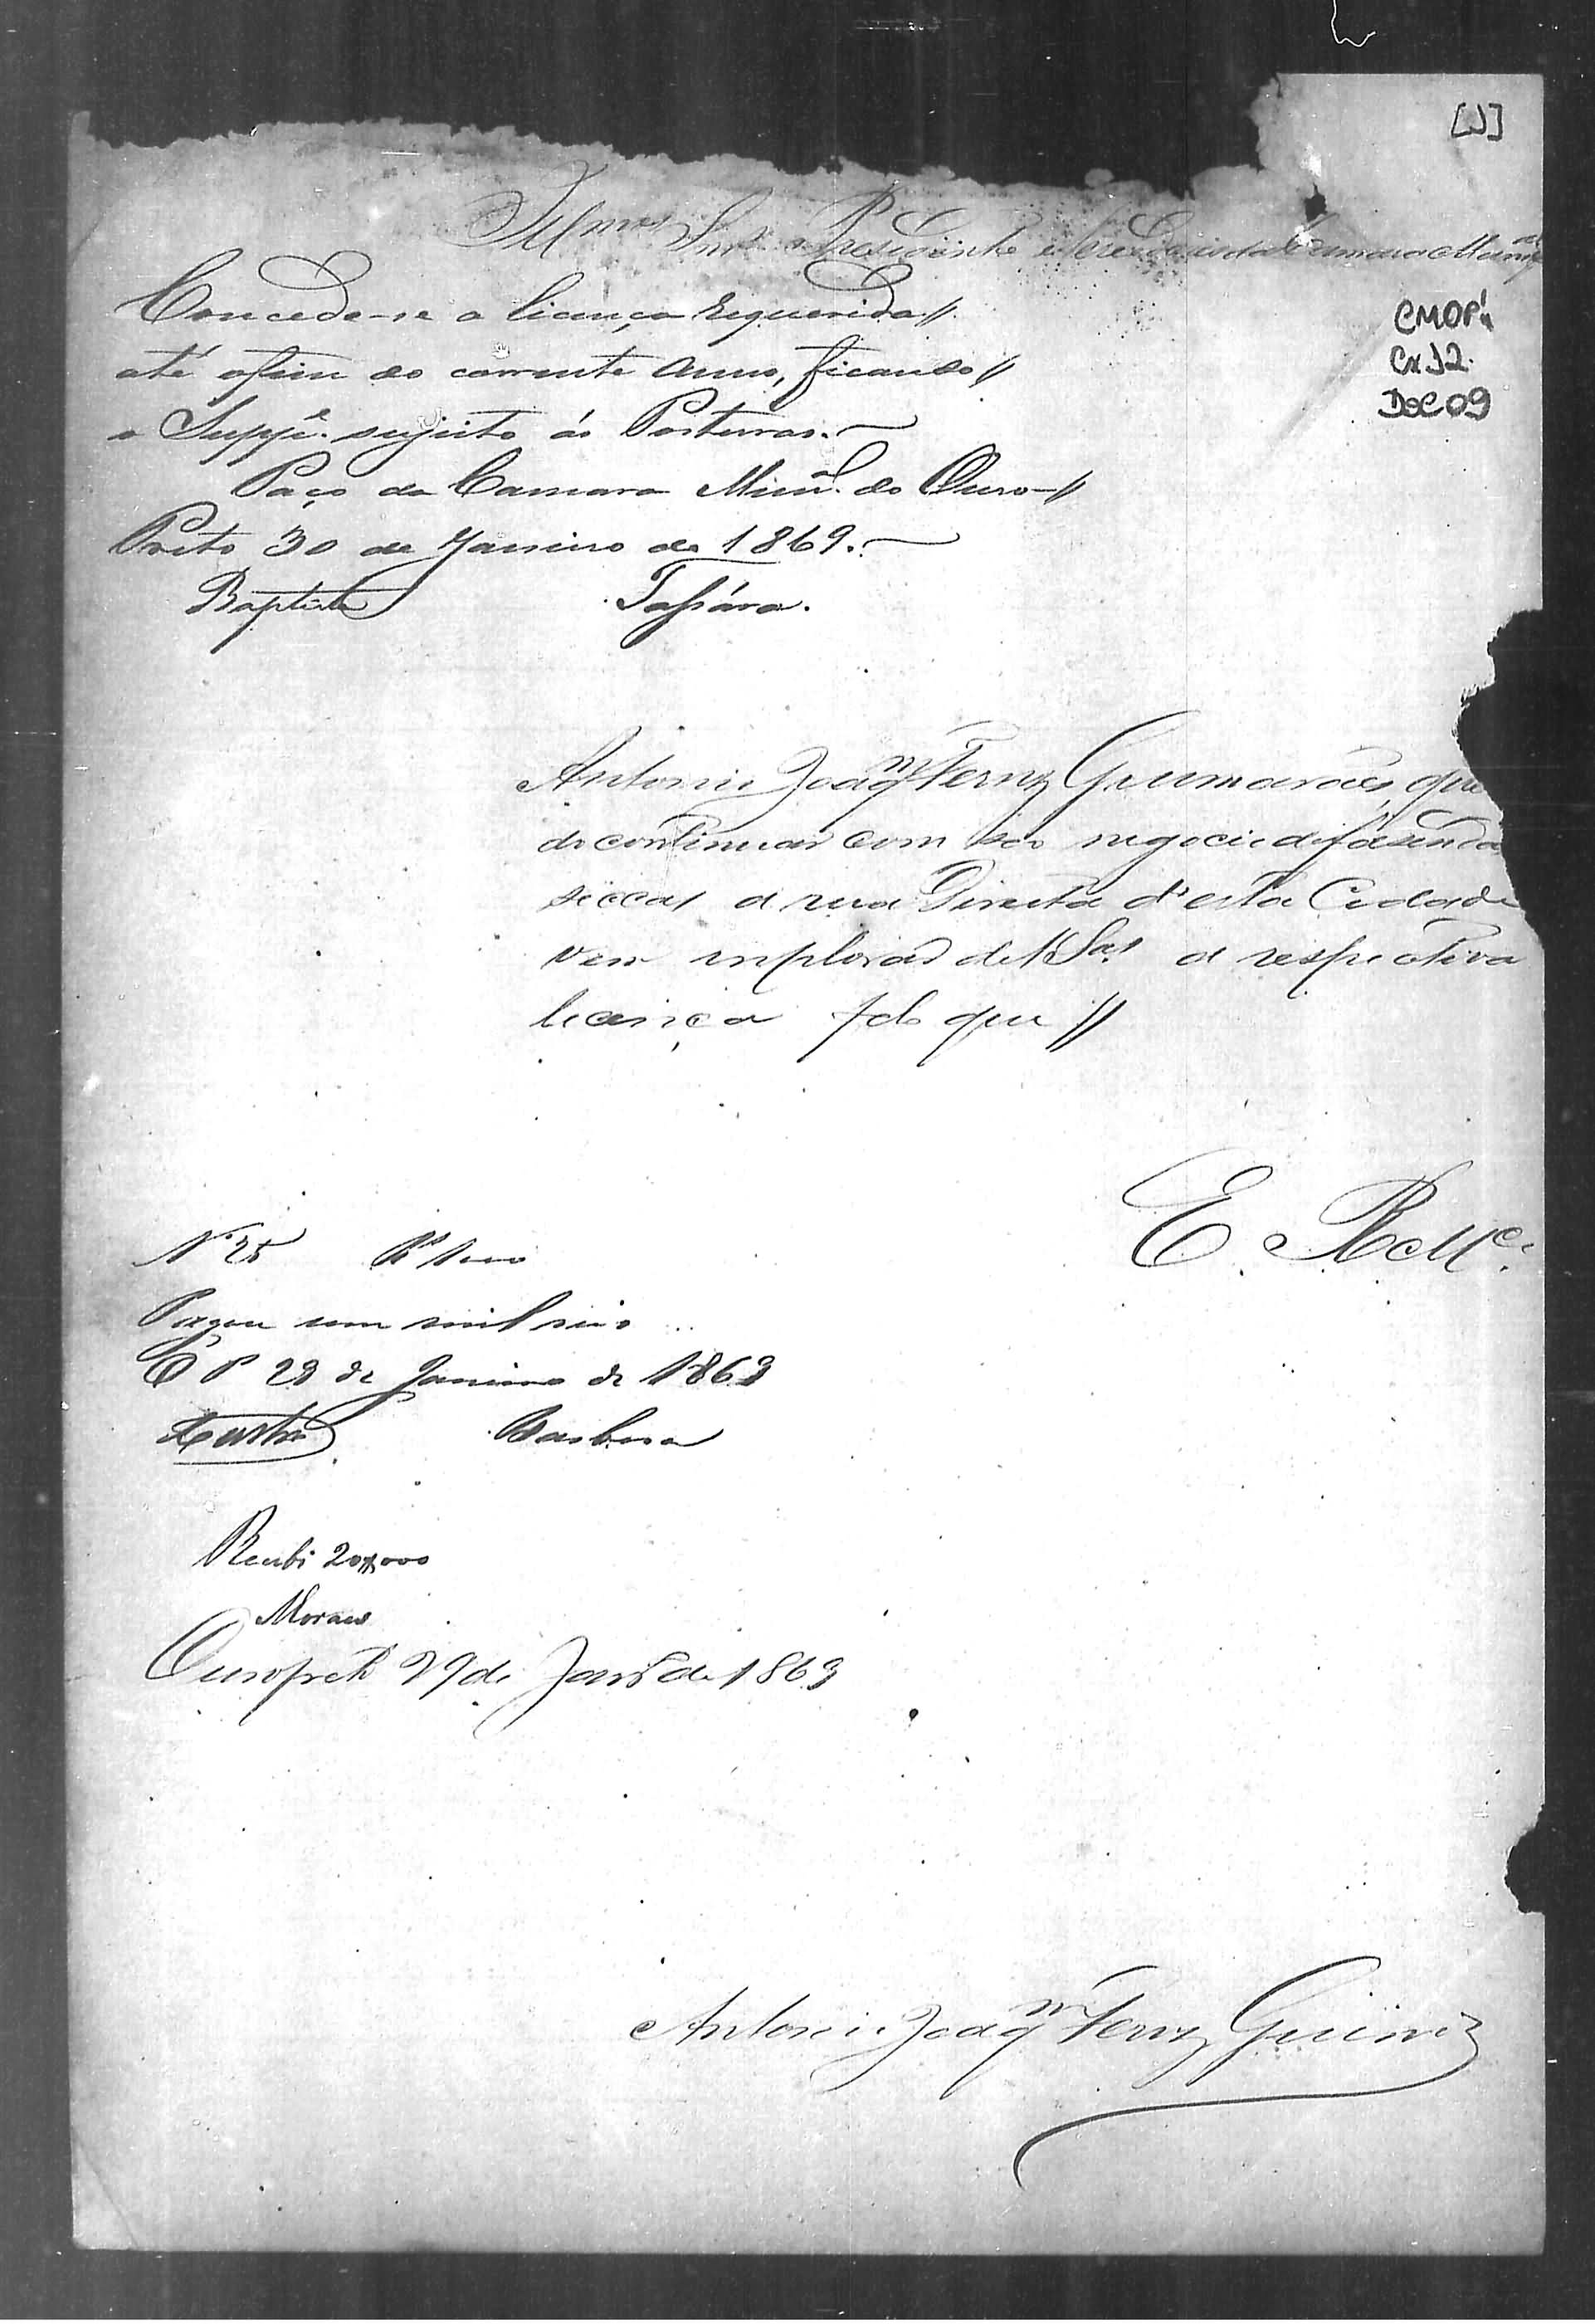 [1]
Illmos Snrs Presidente e Vereadores da Camara Munal
CMOP.
Cx. 12.
Doc 09
Concede-se a licença requerida//
até o fim do corrente anno, ficando//
o Suppe. sujeito ás Posturas.
Paço da Camara Munal. do Ouro-//
Preto 30 de Janeiro de 1869.
Baptista Tassára.
Antonio Joaqm Fernz Guimarães, que
do continuar com seo negocio de fasenda
seccas a rua Direita d'esta Cidade
vem implorar de VSas a respectiva
licença pelo que //
E. R. Mce.
No 25 Rs 1000
Pagou um mil reis
O P 29 de Janeiro de 1869
Costa Barbosa
Recebi 20$000
Moraes
Ouropreto 29 de Janro de 1869
Antonio Joaqm Fernz Guimes